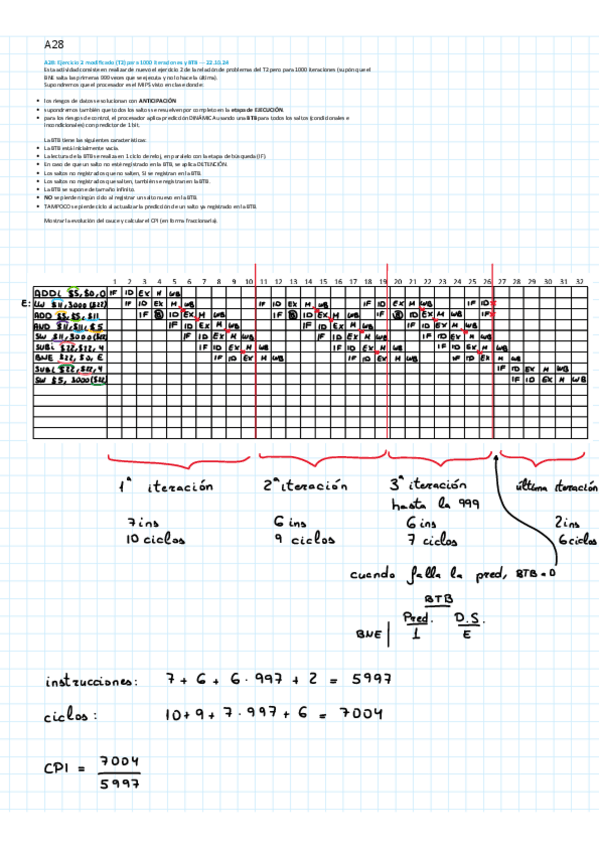 A28
A28: Ejercicio 2 modificado (T2) para 1000 iteraciones y BTB --- 22.10.24
Esta actividad consiste en realizar de nuevo el ejercicio 2 de la relación de problemas del T2 pero para 1000 iteraciones (supón que el
BNE salta las primeras 999 veces que se ejecuta y no lo hace la última).
Supondremos que el procesador es el MIPS visto en clase donde:
• los riesgos de datos se solucionan con ANTICIPACIÓN
• supondremos también que todos los saltos se resuelven por completo en la etapa de EJECUCIÓN.
• para los riesgos de control, el procesador aplica predicción DINÁMICA usando una BTB para todos los saltos (condicionales e
incondicionales) con predictor de 1 bit.
La BTB tiene las siguientes características:
• La BTB está inicialmente vacía.
• La lectura de la BTB se realiza en 1 ciclo de reloj, en paralelo con la etapa de búsqueda (IF).
• En caso de que un salto no esté registrado en la BTB, se aplica DETENCIÓN.
• Los saltos no registrados que no salten, SI se registran en la BTB.
• Los saltos no registrados que salten, también se registran en la BTB.
• La BTB se supone de tamaño infinito.
• NO se pierde ningún ciclo al registrar un salto nuevo en la BTB.
• TAMPOCO se pierde ciclo al actualizar la predicción de un salto ya registrado en la BTB.
Mostrar la evolución del cauce y calcular el CPI (en forma fraccionaria).
1 2 3 4 5 6 7 8 9 10 11 12 13 14 15 16 17 18 19 20 21 22 23 24 25 26 27 28 29 30 31 32
ADDI $5,$0,0 IF ID EX M WB
E: LW $11,3000($22) IF ID EX M WB IF ID EX M WB IF ID EX M WB IF ID
ADD $5,$5,$11 IF ID EX M WB IF ID EX M WB IF ID EX M WB IF
AND $11,$11,$5 IF ID EX M WB IF ID EX M WB IF ID EX M WB
SW $11,3000($22) IF ID EX M WB IF ID EX M WB IF ID EX M WB
SUBi $22,$22,4 IF ID EX M WB IF ID EX M WB IF ID EX M WB
BNE $22,$0,E IF ID EX M WB IF ID EX M WB IF ID EX M WB
SUBi $22,$22,4 IF ID EX M WB
SW $5,3000($22) IF ID EX M WB
1ª iteración
2ª iteración
3ª iteración
hasta la 999
última iteración
7 ins
10 ciclos
6 ins
9 ciclos
6 ins
7 ciclos
2 ins
6 ciclos
cuando falla la pred, BTB=0
BTB
Pred. D.S.
BNE 1 E
instrucciones: 7 + 6 + 6·997 + 2 = 5997
ciclos: 10 + 9 + 7·997 + 6 = 7004
CPI = 7004
5997